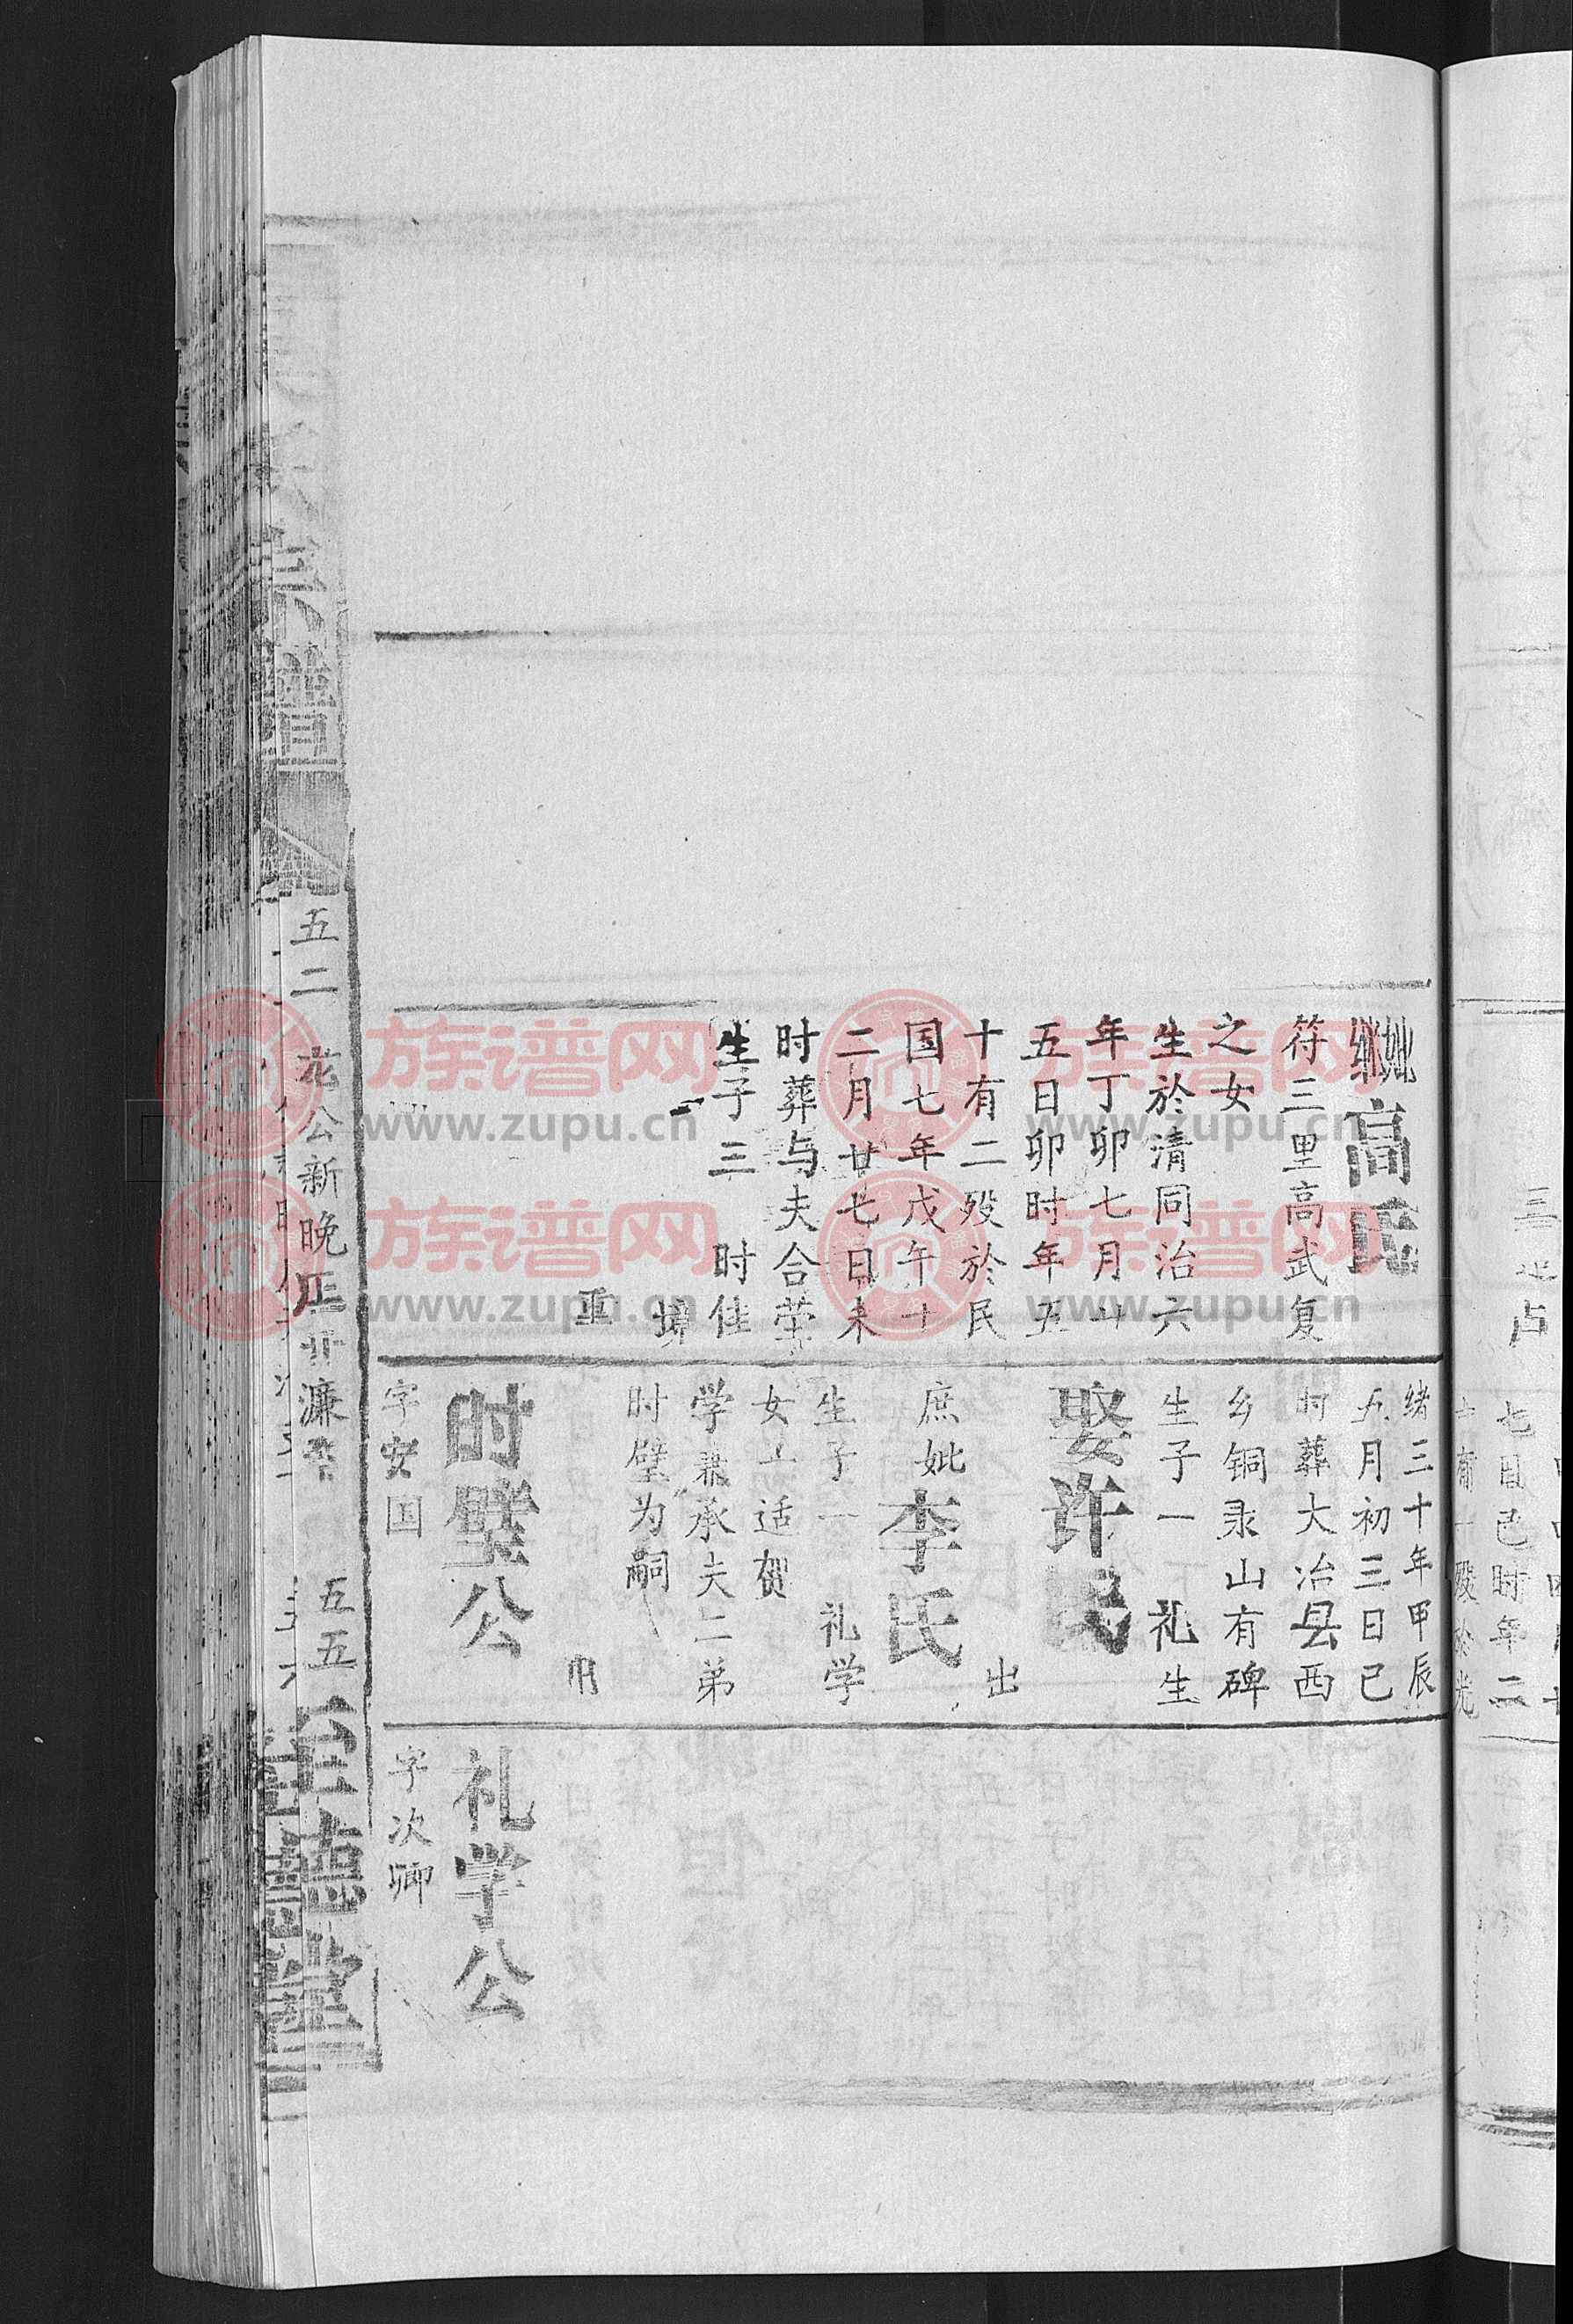 继妣
高氏
符三里高武复
之女
生於清同治六
年丁卯七月廿
五日卯时年五
十有二殁於民
国七年戊午十
二月廿七日未
时葬与夫合茔
生子三 时佳
璋
重
绪三十年甲辰
五月初三日巳
时葬大冶县西
乡铜录山有碑
生子一 礼生
娶许氏
出
庶妣
李氏
生子一 礼学
女一适贺
学兼承夫二弟
时壁为嗣
时璧公
字安国
礼学公
字次卿
宗谱
五二
公新晚
五五
德堂
七日巳时年二
族谱网
www.zupu.cn
族谱网
www.zupu.cn
族谱网
www.zupu.cn
族谱网
www.zupu.cn